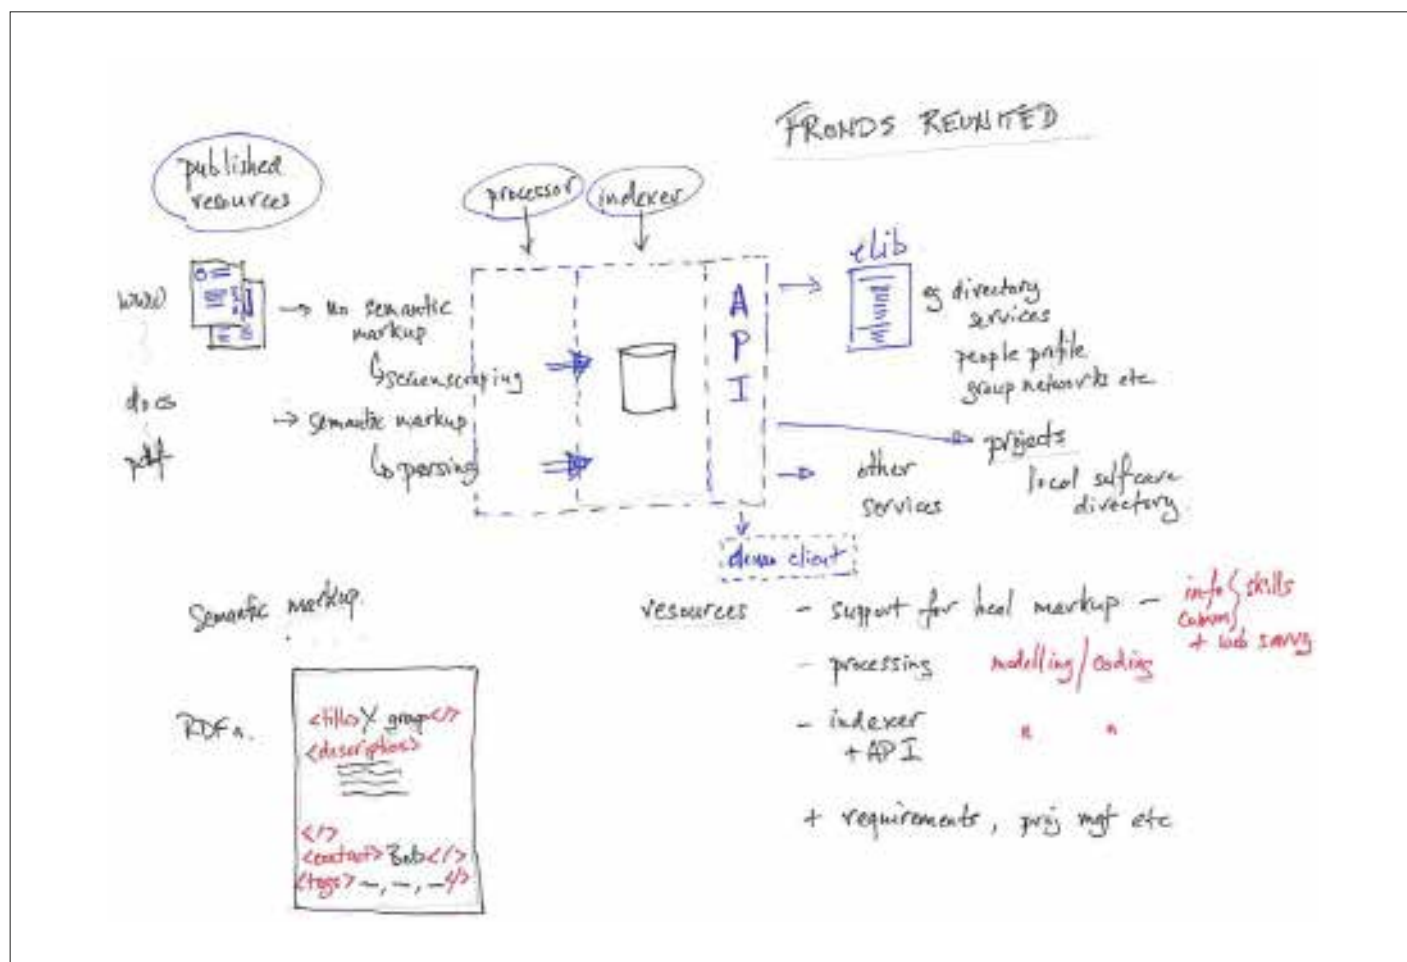 FRONDS REUNITED
published
resources
processor
indexer
www
docs
→ No semantic
markup
↳ screenscraping
→ semantic markup
↳ parsing
A
P
I
elib
eg directory
services
people profile
group networks etc
projects
local selfcare
directory
other
services
demo client
Semantic markup.
RDFa.
<title> X group </>
<description>
</>
<contact> Bob </>
<tags> –, –, – </>
resources
- support for local markup - info } skills
comm
+ web savvy
- processing modelling / coding
- indexer " "
+ API
+ requirements, proj mgt etc